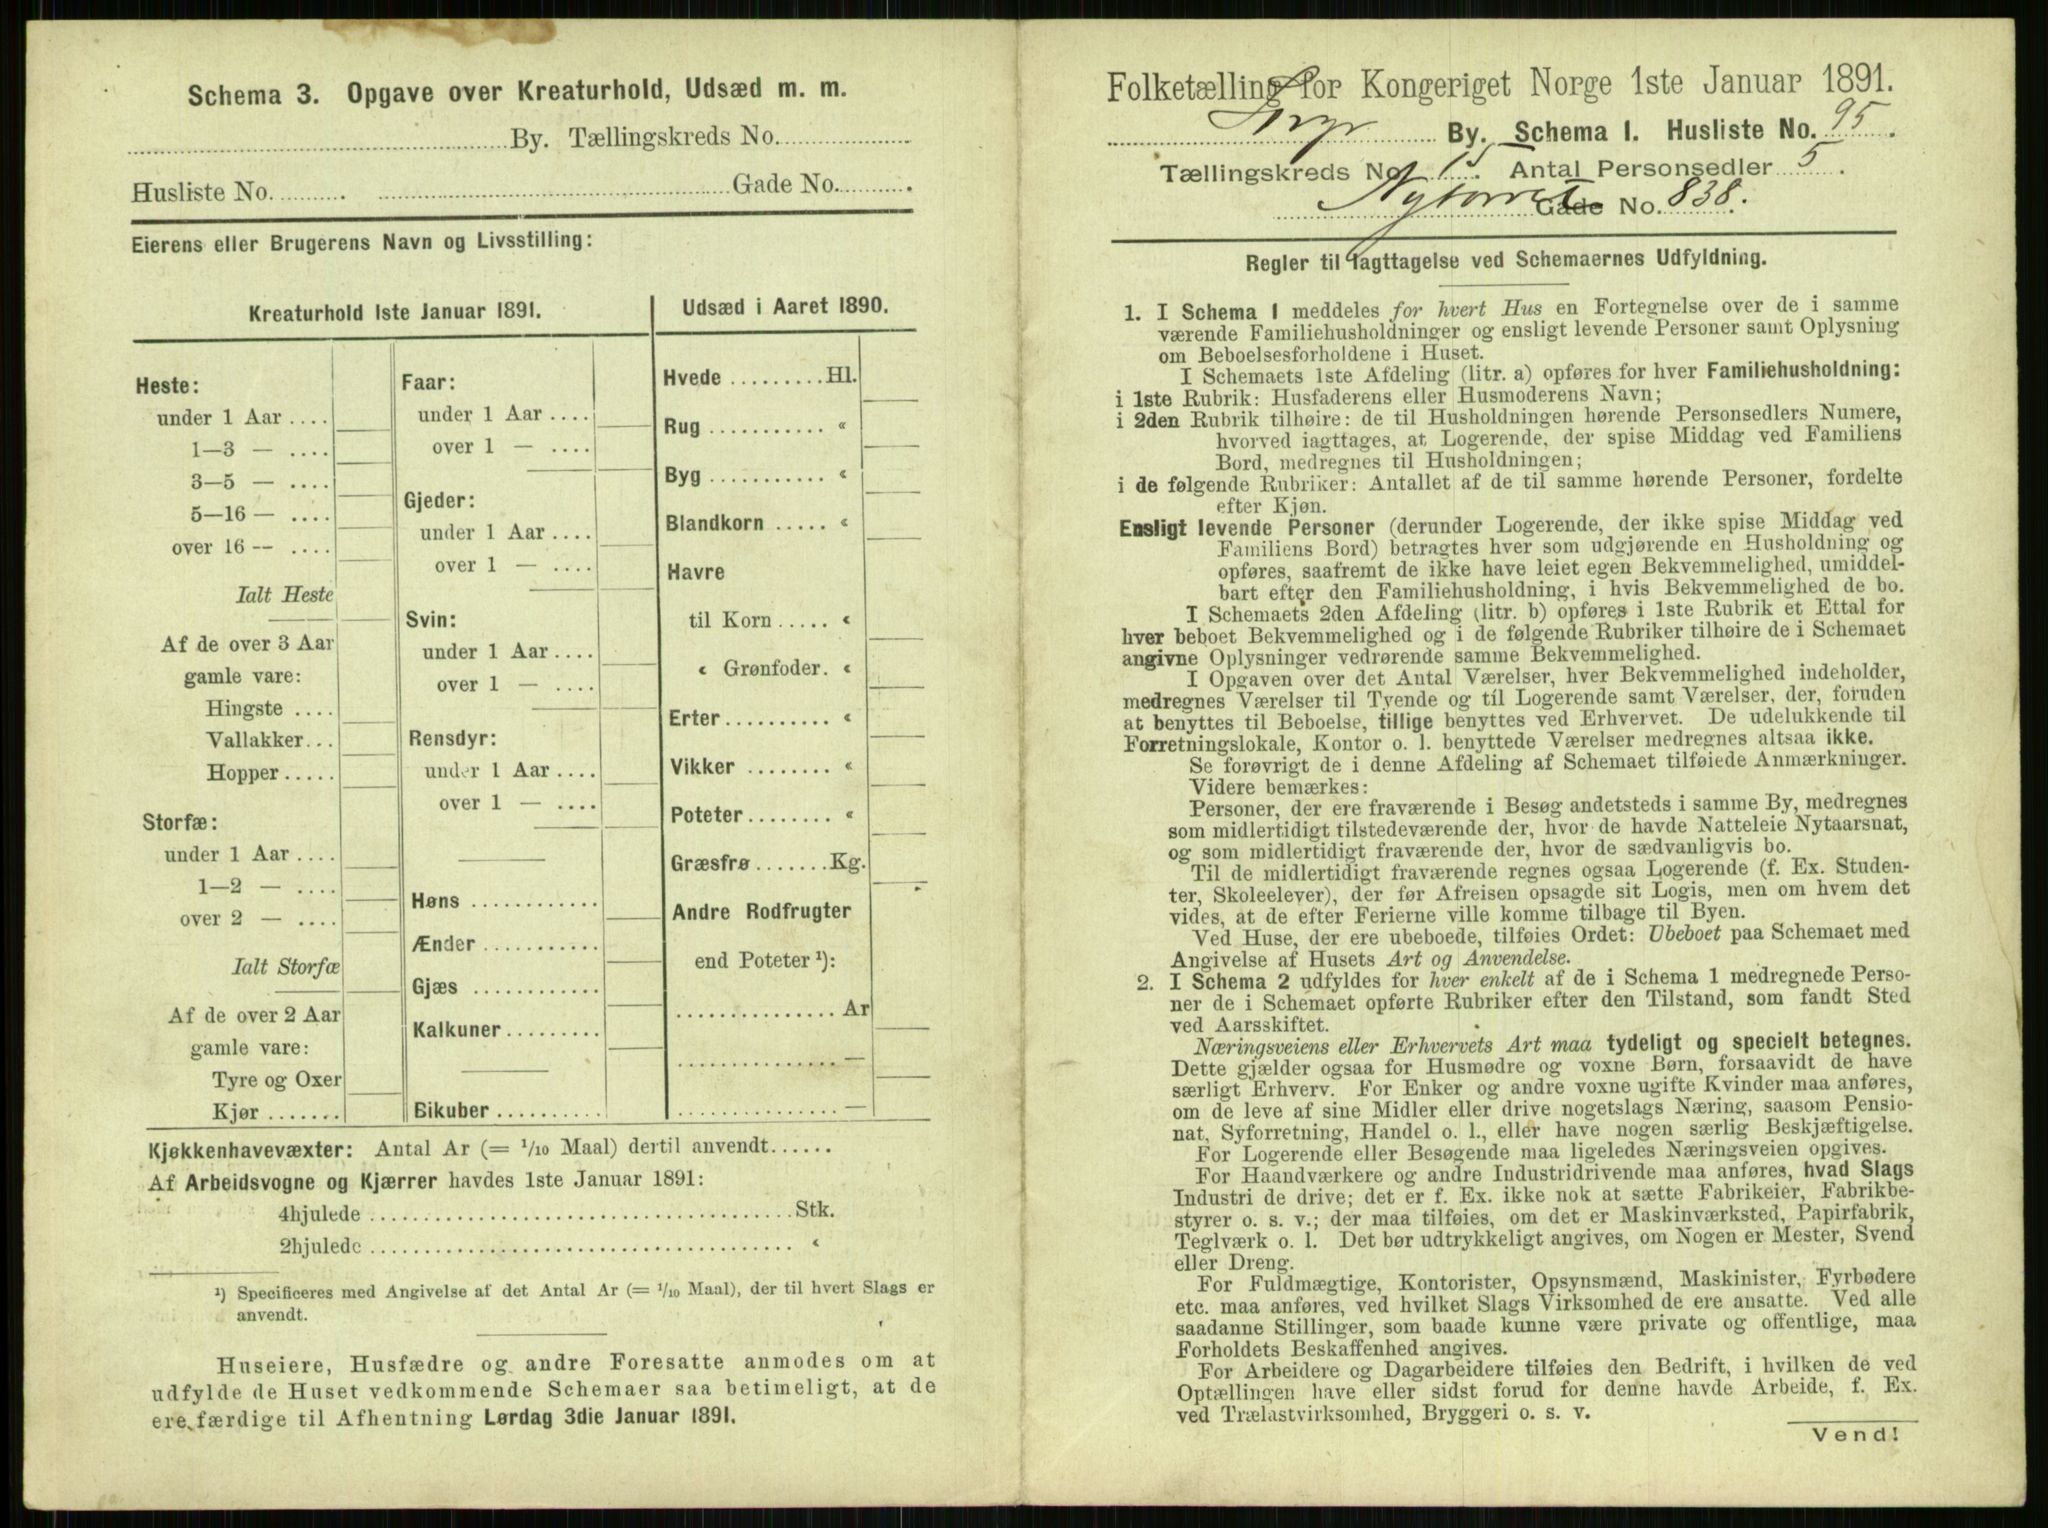 Schema 3. Opgave over Kreaturhold, Udsæd m. m.
By. Tællingskreds No.
Husliste No. Gade No.
Eierens eller Brugerens Navn og Livsstilling:
Kreaturhold 1ste Januar 1891.
Heste:
under 1 Aar ....
1—3 — ....
3—5 — ....
5—16 — ....
over 16 -- ....
Ialt Heste
Af de over 3 Aar
gamle vare:
Hingste ....
Vallakker...
Hopper .....
Storfæ:
under 1 Aar ....
1—2 — ....
over 2 — ....
Ialt Storfæ
Af de over 2 Aar
gamle vare:
Tyre og Oxer
Kjør .......
Faar:
under 1 Aar ....
over 1 — ....
Gjeder:
under 1 Aar ....
over 1 — ....
Svin:
under 1 Aar ....
over 1 — ....
Rensdyr:
under 1 Aar ....
over 1 — ....
Høns ............
Ænder ...........
Gjæs ............
Kalkuner .........
Bikuber ..........
Udsæd i Aaret 1890.
Hvede .........Hl.
Rug ........... «
Byg ........... «
Blandkorn ..... «
Havre
til Korn ..... «
« Grønfoder. «
Erter .......... «
Vikker ........ «
Poteter ........ «
Græsfrø .......Kg.
Andre Rodfrugter
end Poteter ¹):
............... Ar
............... —
............... —
Kjøkkenhavevæxter: Antal Ar (= 1/10 Maal) dertil anvendt......
Af Arbeidsvogne og Kjærrer havdes 1ste Januar 1891:
4hjulede ........................................Stk.
2hjulede ........................................ «
¹) Specificeres med Angivelse af det Antal Ar (= 1/10 Maal), der til hvert Slags er
anvendt.
Huseiere, Husfædre og andre Foresatte anmodes om at
udfylde de Huset vedkommende Schemaer saa betimeligt, at de
ere færdige til Afhentning Lørdag 3die Januar 1891.
Folketælling for Kongeriget Norge 1ste Januar 1891.
By. Schema 1. Husliste No. 95.
Tællingskreds No. 15. Antal Personsedler 5.
Nytorvet Gade No. 838.
Regler til Iagttagelse ved Schemaernes Udfyldning.
1. I Schema 1 meddeles for hvert Hus en Fortegnelse over de i samme
værende Familiehusholdninger og ensligt levende Personer samt Oplysning
om Beboelsesforholdene i Huset.
I Schemaets 1ste Afdeling (litr. a) opføres for hver Familiehusholdning:
i 1ste Rubrik: Husfaderens eller Husmoderens Navn;
i 2den Rubrik tilhøire: de til Husholdningen hørende Personsedlers Numere,
hvorved iagttages, at Logerende, der spise Middag ved Familiens
Bord, medregnes til Husholdningen;
i de følgende Rubriker: Antallet af de til samme hørende Personer, fordelte
efter Kjøn.
Ensligt levende Personer (derunder Logerende, der ikke spise Middag ved
Familiens Bord) betragtes hver som udgjørende en Husholdning og
opføres, saafremt de ikke have leiet egen Bekvemmelighed, umiddel-
bart efter den Familiehusholdning, i hvis Bekvemmelighed de bo.
I Schemaets 2den Afdeling (litr. b) opføres i 1ste Rubrik et Ettal for
hver beboet Bekvemmelighed og i de følgende Rubriker tilhøire de i Schemaet
angivne Oplysninger vedrørende samme Bekvemmelighed.
I Opgaven over det Antal Værelser, hver Bekvemmelighed indeholder,
medregnes Værelser til Tyende og til Logerende samt Værelser, der, foruden
at benyttes til Beboelse, tillige benyttes ved Erhvervet. De udelukkende til
Forretningslokale, Kontor o. l. benyttede Værelser medregnes altsaa ikke.
Se forøvrigt de i denne Afdeling af Schemaet tilføiede Anmærkninger.
Videre bemærkes:
Personer, der ere fraværende i Besøg andetsteds i samme By, medregnes
som midlertidigt tilstedeværende der, hvor de havde Natteleie Nytaarsnat,
og som midlertidigt fraværende der, hvor de sædvanligvis bo.
Til de midlertidigt fraværende regnes ogsaa Logerende (f. Ex. Studen-
ter, Skoleelever), der før Afreisen opsagde sit Logis, men om hvem det
vides, at de efter Ferierne ville komme tilbage til Byen.
Ved Huse, der ere ubeboede, tilføies Ordet: Ubeboet paa Schemaet med
Angivelse af Husets Art og Anvendelse.
2. I Schema 2 udfyldes for hver enkelt af de i Schema 1 medregnede Perso-
ner de i Schemaet opførte Rubriker efter den Tilstand, som fandt Sted
ved Aarsskiftet.
Næringsveiens eller Erhvervets Art maa tydeligt og specielt betegnes.
Dette gjælder ogsaa for Husmødre og voxne Børn, forsaavidt de have
særligt Erhverv. For Enker og andre voxne ugifte Kvinder maa anføres,
om de leve af sine Midler eller drive nogetslags Næring, saasom Pensio-
nat, Syforretning, Handel o. l., eller have nogen særlig Beskjæftigelse.
For Logerende eller Besøgende maa ligeledes Næringsveien opgives.
For Haandværkere og andre Industridrivende maa anføres, hvad Slags
Industri de drive; det er f. Ex. ikke nok at sætte Fabrikeier, Fabrikbe-
styrer o. s. v.; der maa tilføies, om det er Maskinværksted, Papirfabrik,
Teglværk o. l. Det bør udtrykkeligt angives, om Nogen er Mester, Svend
eller Dreng.
For Fuldmægtige, Kontorister, Opsynsmænd, Maskinister, Fyrbødere
etc. maa anføres, ved hvilket Slags Virksomhed de ere ansatte. Ved alle
saadanne Stillinger, som baade kunne være private og offentlige, maa
Forholdets Beskaffenhed angives.
For Arbeidere og Dagarbeidere tilføies den Bedrift, i hvilken de ved
Optællingen have eller sidst forud for denne havde Arbeide, f. Ex.
ved Trælastvirksomhed, Bryggeri o. s. v.
Vend!